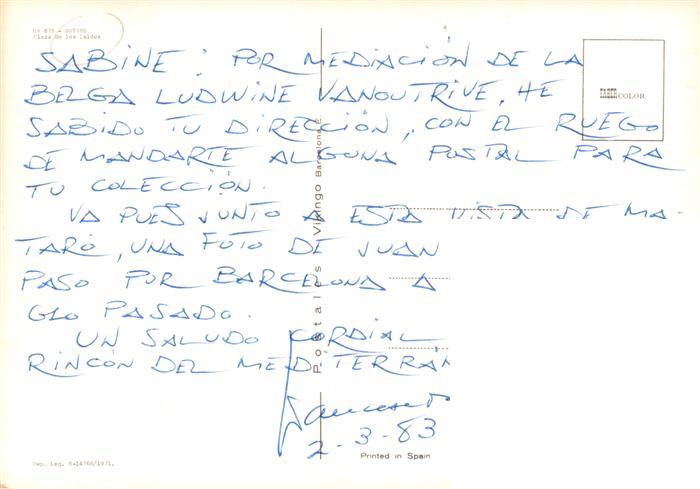 MATARÓ
Plaza de los Caídos
SABINE: POR MEDIACIÓN DE LA
BELGA LUDWINE VANOUTRIVE, HE
SABIDO TU DIRECCIÓN, CON EL RUEGO
DE MANDARTE ALGUNA POSTAL PARA
TU COLECCIÓN.
VA PUES JUNTO A ESTA VISTA DE MA-
TARÓ, UNA FOTO DE JUAN
PASO POR BARCELONA A
GLO PASADO.
UN SALUDO CORDIAL
RINCÓN DEL MEDITERRÁN
2-3-83
Postales Vikingo Barcelona
COLOR
Printed in Spain
Dep. Leg. B-14766/1971.